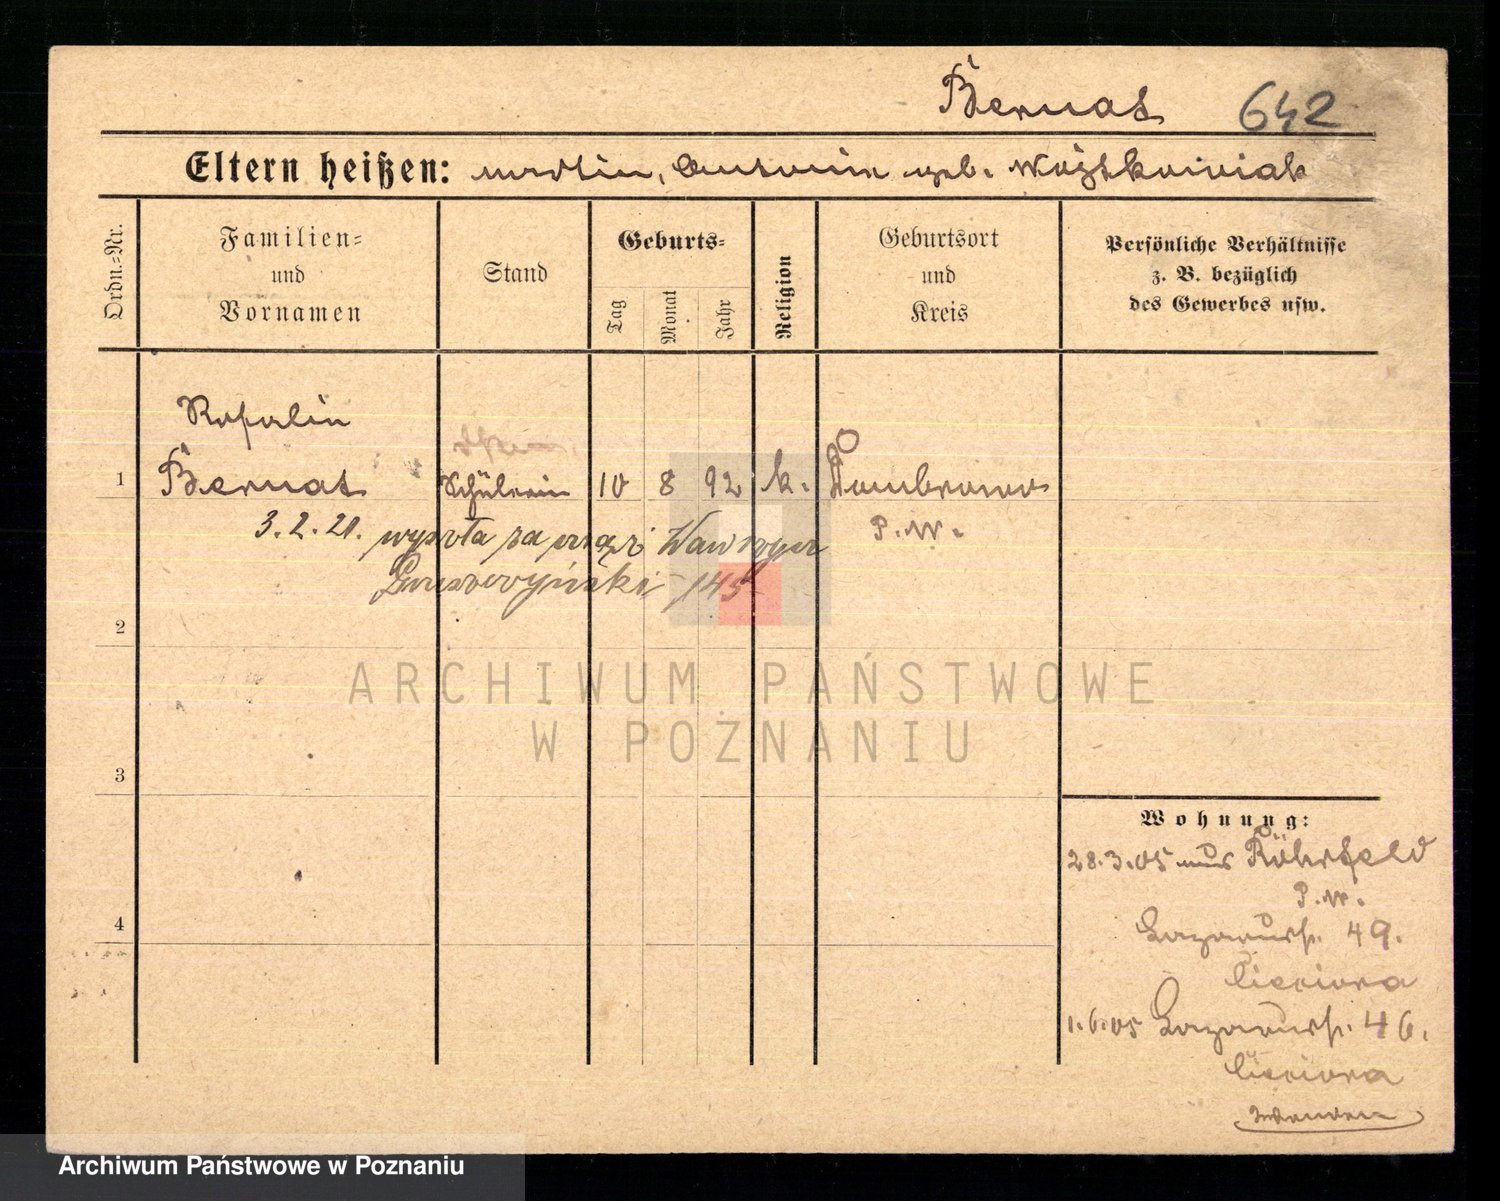 Bernat 642
Eltern heißen: Martin, Antonie geb. Wojtkowiak
Ordn.=Nr.
Familien=
und
Vornamen
Stand
Geburts=
Tag
Monat
Jahr
Religion
Geburtsort
und
Kreis
Persönliche Verhältnisse
z. B. bezüglich
des Gewerbes usw.
Rosalie
1 Bernat Schülerin 10 8 92 k. Dombrowo
P.W.
3.2.21. wyszła za mąż
145
2
3
4
Wohnung:
28.3.05 aus Röhrfeld
P.W.
Lazarusstr. 49.
Cieciora
1.6.05 Lazarusstr. 46.
Cieciora
wenden
ARCHIWUM PAŃSTWOWE
W POZNANIU
Archiwum Państwowe w Poznaniu